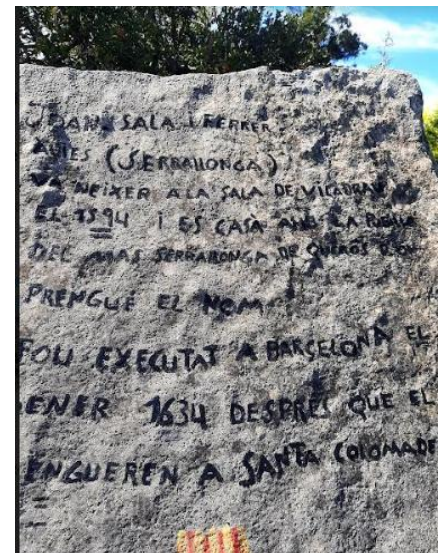 JOAN SALA I FERRER
ALIES (SERRALLONGA)
VA NEIXER A LA SALA DE VILADRAU
EL 1594 I ES CASÀ AMB LA PUBILLA
DEL MAS SERRALLONGA DE QUERÓS
PRENGUÉ EL NOM
FOU EXECUTAT A BARCELONA EL
GENER 1634 DESPRÉS QUE EL
ENGUEREN A SANTA COLOMA DE